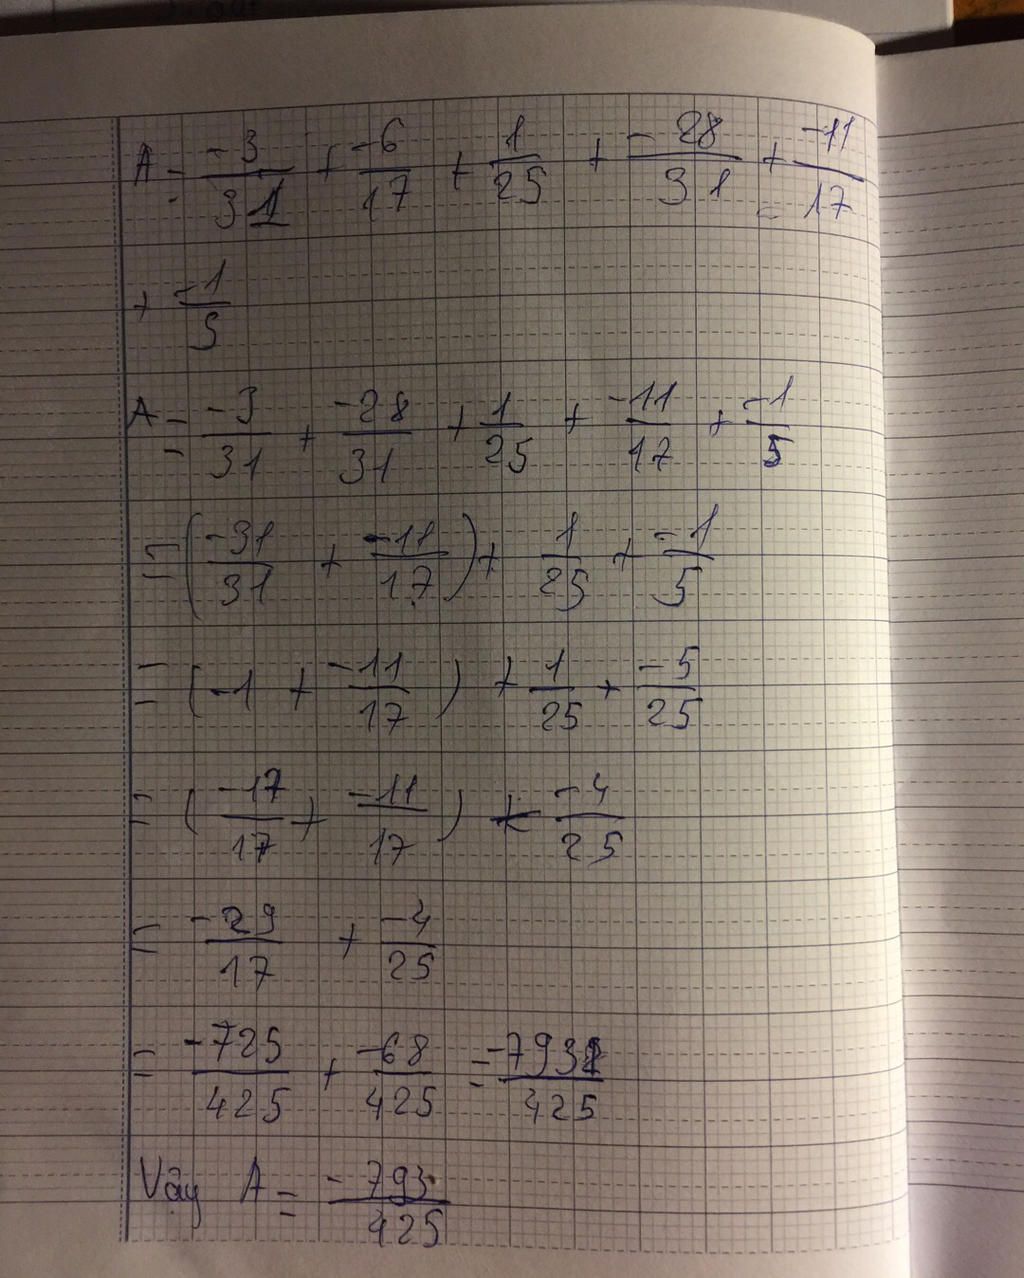 A = -3/31 + -6/17 + 1/25 + -28/31 + -11/17
+ -1/5
A = -3/31 + -28/31 + 1/25 + -11/17 + -1/5
= (-31/31 + -11/17) + 1/25 + -1/5
= (-1 + -11/17) + 1/25 + -5/25
= (-17/17 + -11/17) + -4/25
= -29/17 + -4/25
= -725/425 + -68/425 = -793/425
Vậy A = -793/425